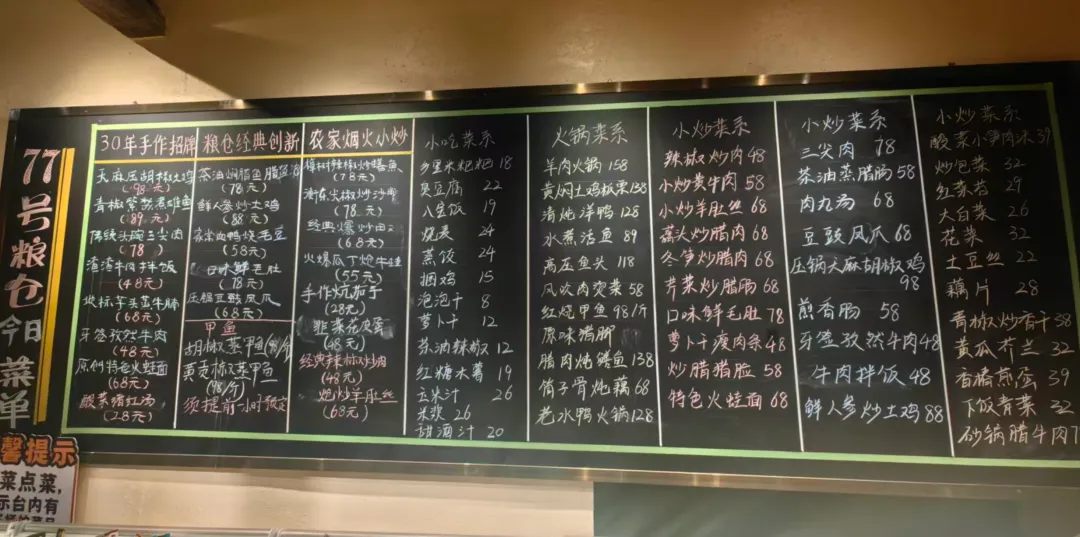 77号粮仓今日菜单
30年手作招牌
天麻压胡椒土鸡
(98元)
青椒紫苏煮雄鱼
(89元)
传统头碗三尖肉
(78)
渣渣牛肉手拌饭
(48元)
地标车头蒸牛腩
(68元)
牙签孜然牛肉
(48元)
原创特色火蛙面
(68元)
酸菜猪红汤
(28元)
粮仓经典创新
茶油焖腊鱼腊
(78元)
鲜人参炒土鸡
(88元)
血鸭烧毛豆
(58元)
口味鲜毛肚
(78元)
压锅豆豉凤爪
(68元)
甲鱼
胡椒蒸甲鱼
蒸甲鱼
(98/斤)
须提前一小时预定
农家烟火小炒
樟树辣椒炒鳝鱼
(78元)
(78元)
经典爆炒
(68元)
火爆瓜丁炮牛蛙
(55元)
手作炕茄子
(28元)
韭菜花皮蛋
(48元)
经典辣椒炒肉
(48元)
炮炒羊肚丝
(68元)
小吃菜系
乡里米粑粑 18
臭豆腐 22
八宝饭 19
烧麦 24
蒸饺 24
捆鸡 15
泡泡干 8
萝卜干 12
茶油辣椒 12
红糖木薯 19
玉米汁 26
米浆 26
甜酒汁 20
火锅菜系
羊肉火锅 158
黄焖土鸡板栗 138
清炖洋鸭 128
水煮活鱼 89
高压鱼头 118
风吹肉炆菜 58
红烧甲鱼 98/斤
原味猪脚
腊肉炖鳝鱼 138
筒子骨炖藕 68
老水鸭火锅 128
小炒菜系
辣椒炒肉 48
小炒黄牛肉 58
小炒羊肚丝 68
藠头炒腊肉 68
冬笋炒腊肉 68
芹菜炒腊肠 68
口味鲜毛肚 78
萝卜干瘦肉条 48
炒腊猪脸 58
特色火蛙面 68
小炒菜系
三尖肉 78
茶油蒸腊肠 58
肉丸汤 68
豆豉凤爪 68
压锅天麻胡椒鸡
98
煎香肠 58
牙签孜然牛肉 48
牛肉拌饭 48
鲜人参炒土鸡 88
小炒菜系
酸菜小笋肉沫 39
炒包菜 32
红菜苔 29
大白菜 26
花菜 32
土豆丝 22
藕片 28
青椒炒香干 38
黄瓜芥兰 32
香椿煎蛋 39
下饭青菜 32
砂锅腊牛肉
馨提示
菜点菜,
示台内有